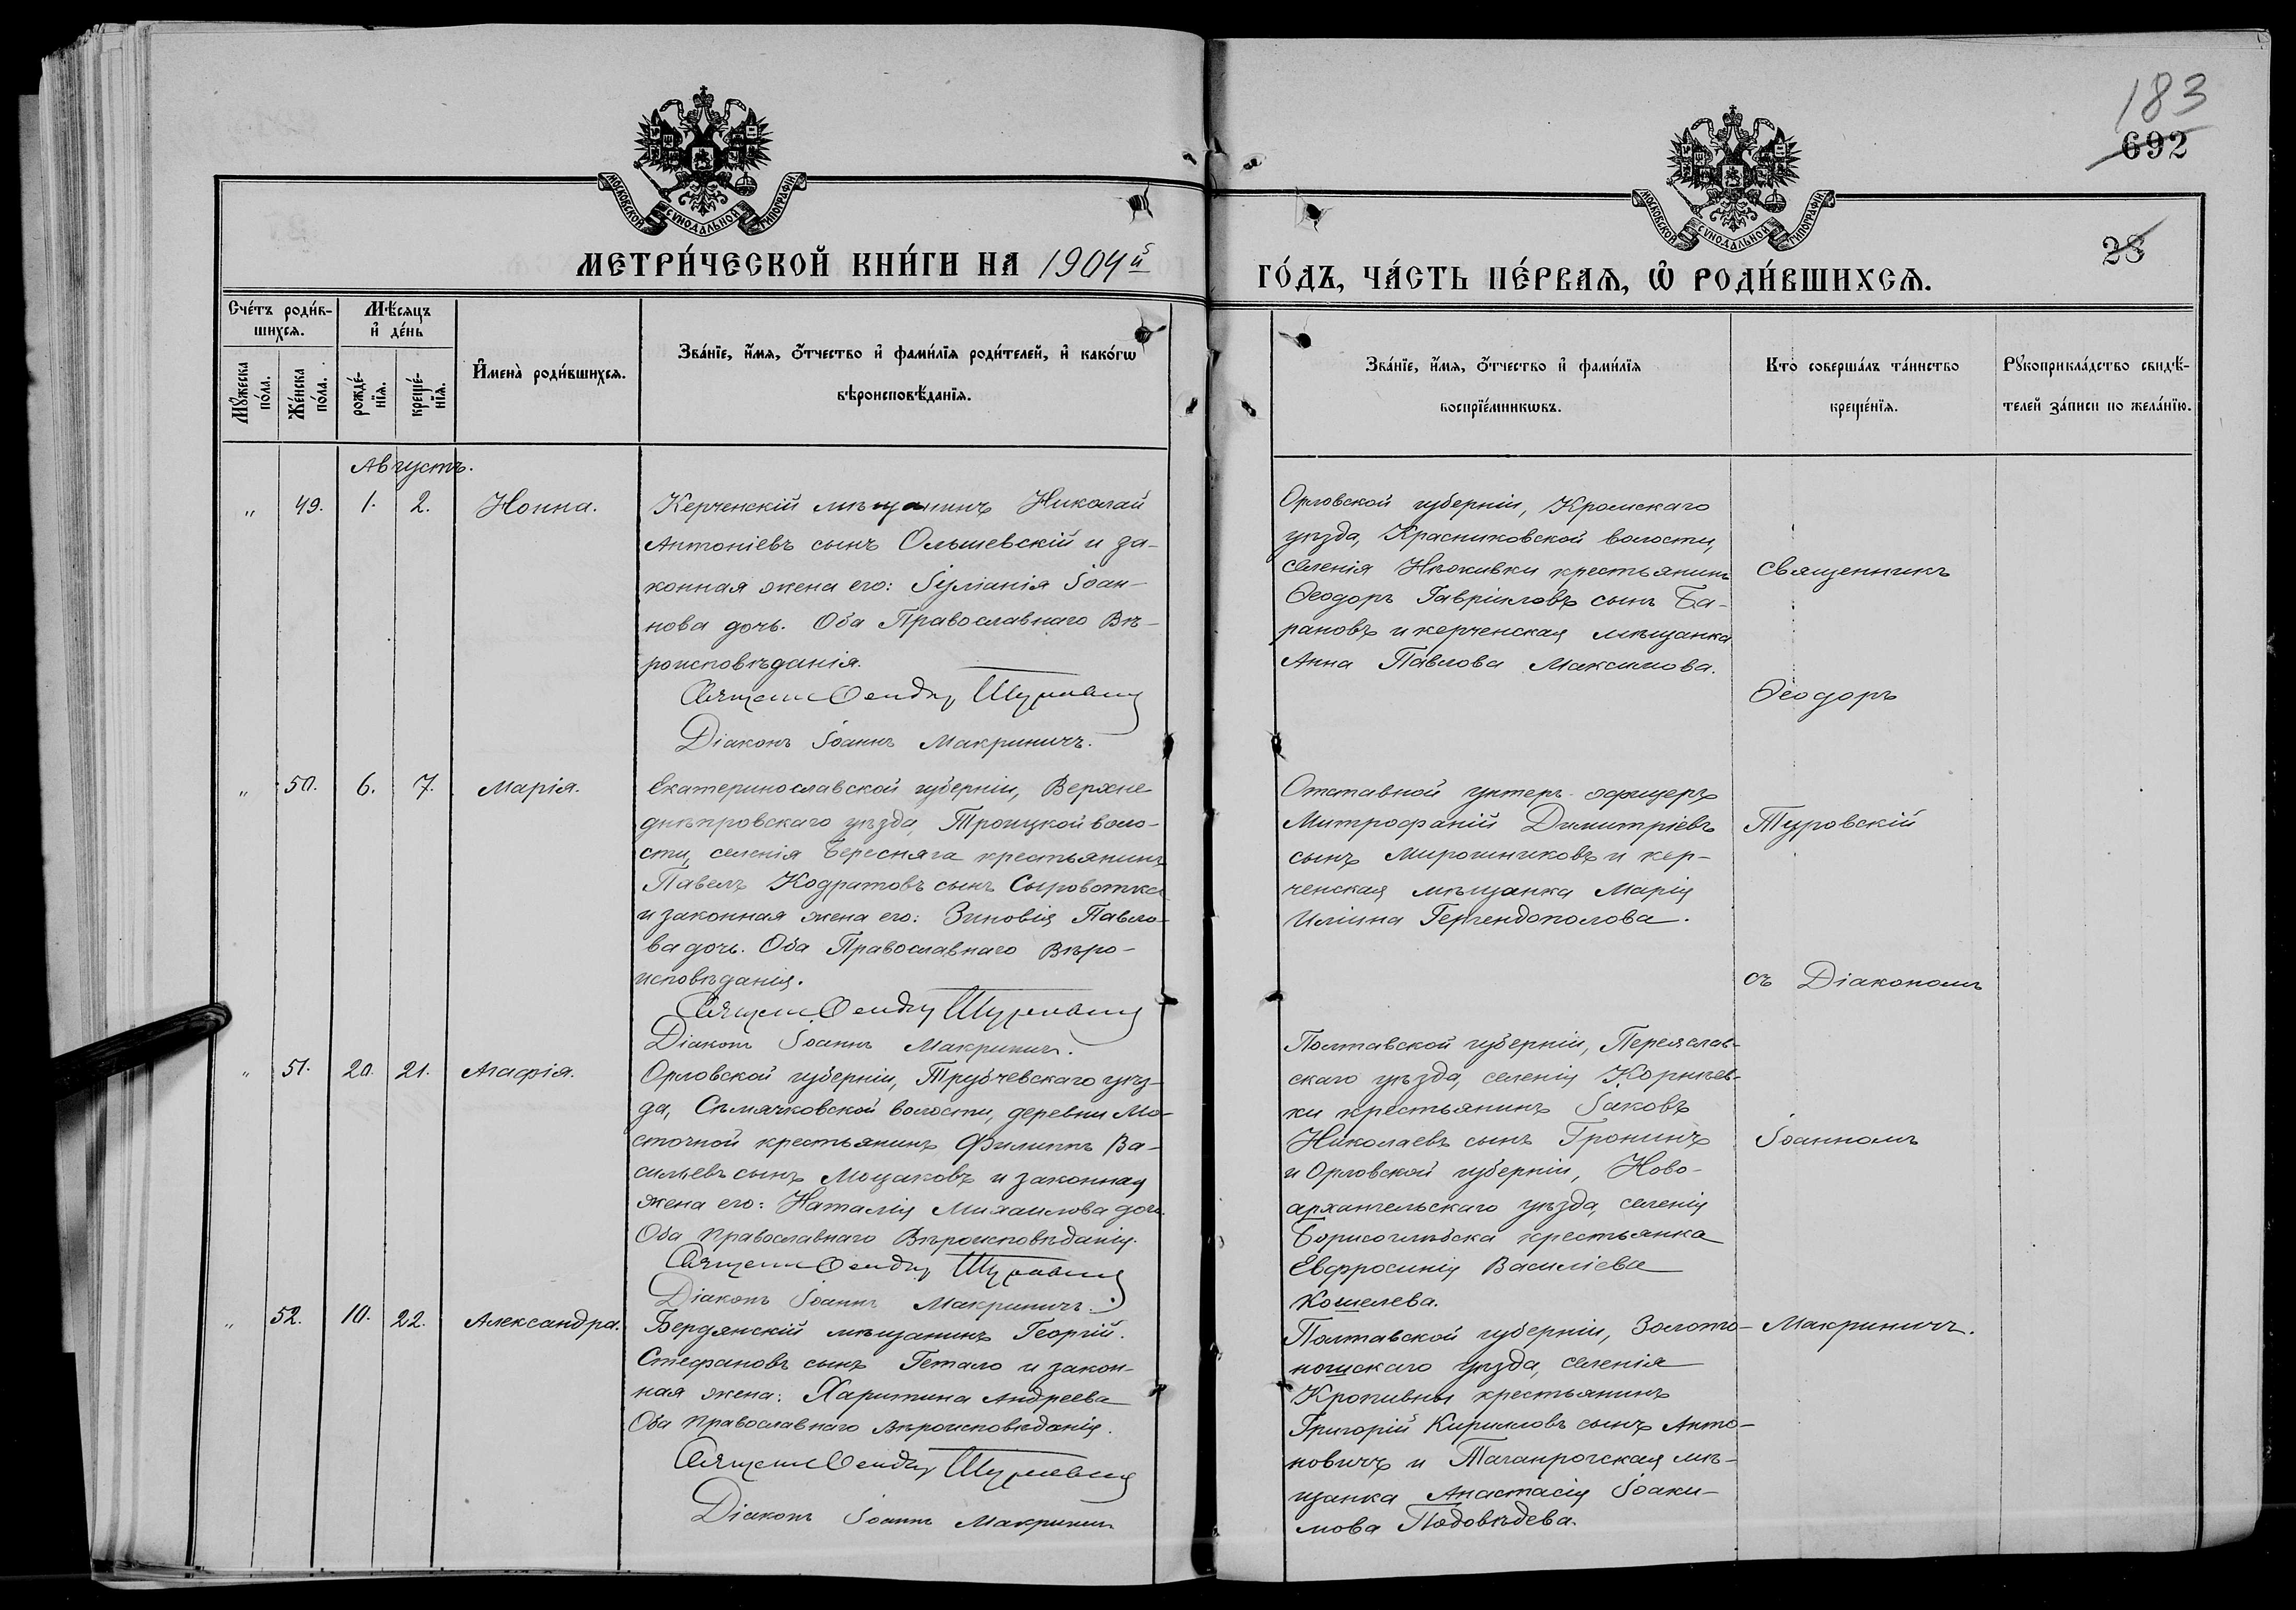 183
692
28
МОСКОВСКОЙ СѴНОДАЛЬНОЙ ТИПОГРАФІИ
МОСКОВСКОЙ СѴНОДАЛЬНОЙ ТИПОГРАФІИ
МЕТРИ́ЧЕСКОЙ КНИ́ГИ НА 1904й
ГО́ДЪ, ЧА́СТЬ ПЕ́РВАѦ, Ѡ҆ РОДИ́ВШИХСѦ.
Сче́тъ роди́в-
шихсѧ.
Мѣ́сѧцъ
и҆ де́нь
Мꙋ́жеска
по́ла.
Же́нска
по́ла.
рожде́-
нїѧ.
креще́-
нїѧ.
И҆мена̀ роди́вшихсѧ.
Зва́нїе, и҆́мѧ, ѻ҆́тчество и҆ фами́лїѧ роди́телей, и҆ како́гѡ
вѣроисповѣ́данїѧ.
Зва́нїе, и҆́мѧ, ѻ҆́тчество и҆ фами́лїѧ
воспрїе́мникѡвъ.
Кто̀ соверша́лъ та́инство
креще́нїѧ.
Рꙋкоприкла́дство свидѣ́-
телей за́писи по жела́нїю.
Августъ.
„ 49. 1. 2. Нонна.
Керченскій мѣщанинъ Николай
Антоніевъ сынъ Ольшевскій и за-
конная жена его: Іуліанія Іоан-
нова дочь. Оба Православнаго Вѣ-
роисповѣданія.
Діаконъ Іоаннъ Макриничъ.
Орловской губерніи, Кромскаго
уѣзда, Красниковской волости,
селенія крестьянинъ
Ѳеодоръ Гавріиловъ сынъ Ба-
рановъ и керченская мѣщанка
Анна Павлова Максимова.
Священникъ
Ѳеодоръ
„ 50. 6. 7. Марія.
Екатеринославской губерніи, Верхне
днѣпровскаго уѣзда, Троицкой воло-
сти, селенія Березняга крестьянинъ
Павелъ Кодратовъ сынъ Сыроватка
и законная жена его: Зиновія Павло-
ва дочь. Оба Православнаго Вѣро-
исповѣданія.
Діаконъ Іоаннъ Макриничъ.
Отставной унтеръ-офицеръ
Митрофаній Димитріевъ
сынъ Мирошниковъ и кер-
ченская мѣщанка Марія
Иліина
Туровскій
съ Діакономъ
„ 51. 20. 21. Агафія.
Орловской губерніи, Трубчевскаго уѣз-
да, Сѣмячковской волости, деревни Мо-
сточной крестьянинъ Филиппъ Ва-
сильевъ сынъ Моцаковъ и законная
жена его: Наталія Михаилова дочь.
Оба Православнаго Вѣроисповѣданія.
Діаконъ Іоаннъ Макриничъ.
Полтавской губерніи, Переяслав-
скаго уѣзда, селенія Корнѣев-
ки крестьянинъ Іаковъ
Николаевъ сынъ Гронинъ
и Орловской губерніи, Ново-
архангельскаго уѣзда, селенія
Борисоглѣбска крестьянка
Евфросинія Василіева
Кошелева.
Іоанномъ
„ 52. 10. 22. Александра.
Бердянскій мѣщанинъ Георгій
Стефановъ сынъ Гетало и закон-
ная жена: Харитина Андреева
Оба Православнаго Вѣроисповѣданія.
Діаконъ Іоаннъ Макриничъ
Полтавской губерніи, Золото-
ношскаго уѣзда, селенія
Кропивны крестьянинъ
Григорій Кирилловъ сынъ Анто-
новичъ и Таганрогская мѣ-
щанка Анастасія Іоаки-
мова
Макриничъ.